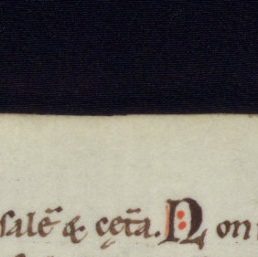 ſalē & cęta. Non